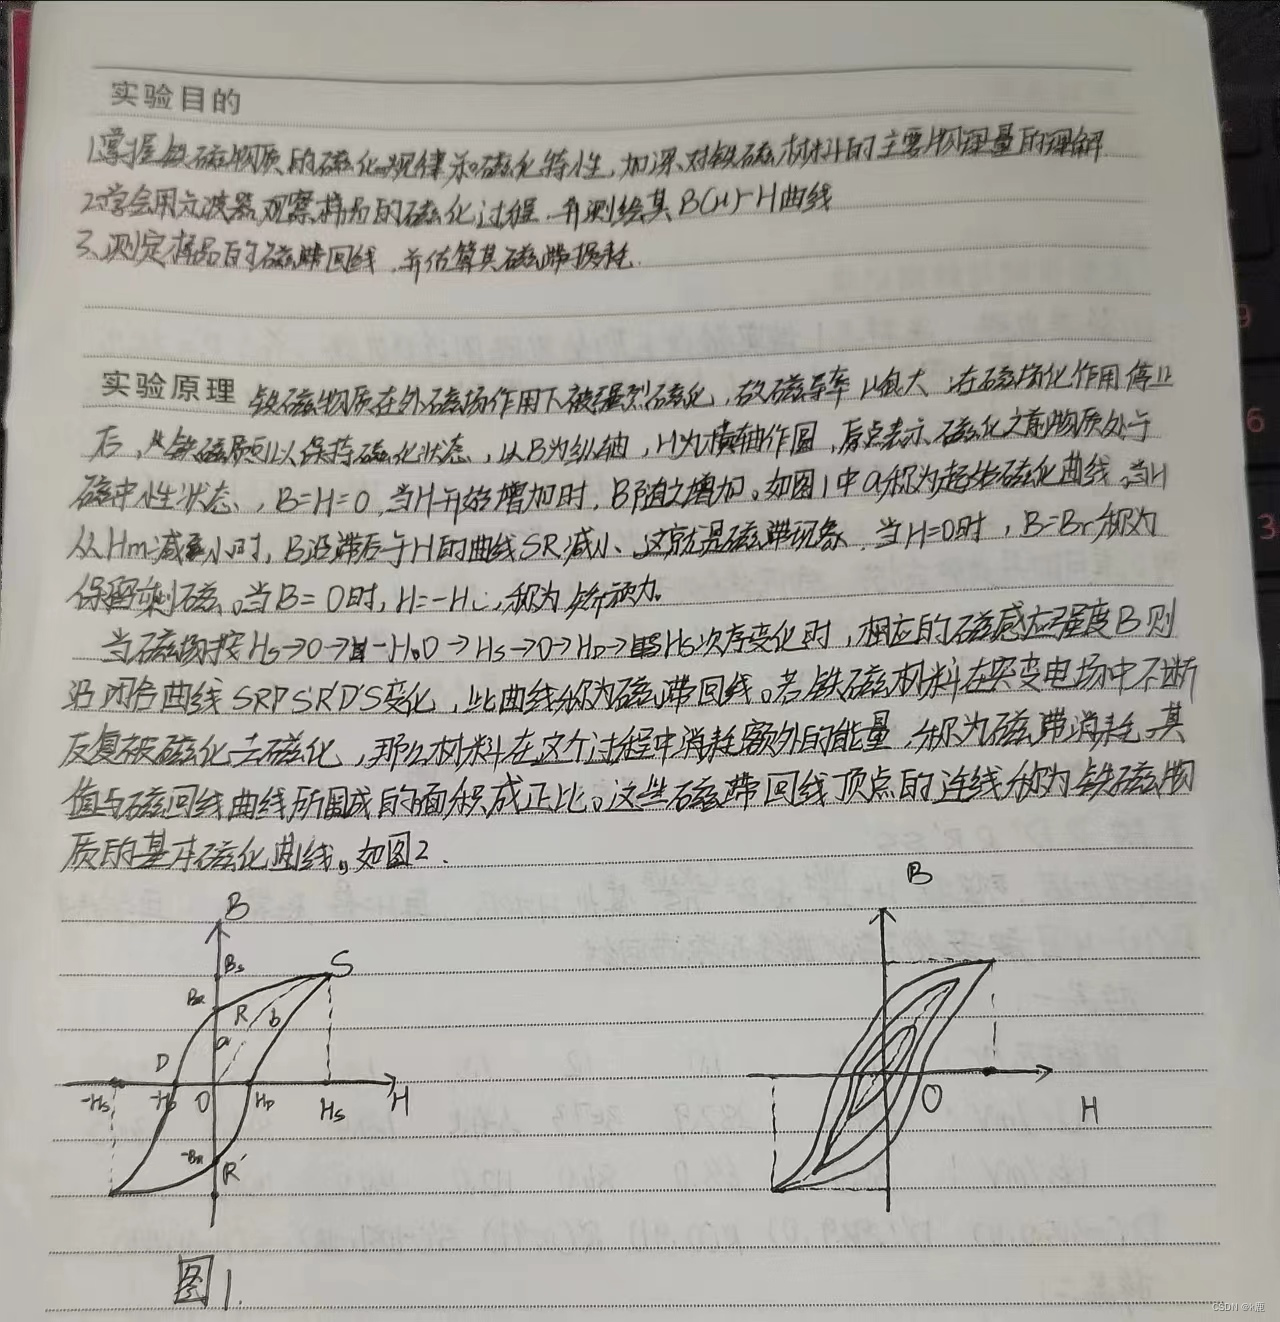 实验目的
1.掌握铁磁物质的磁化规律和磁化特性,加深对铁磁材料的主要物理量的理解
2.学会用示波器观察样品的磁化过程,并测绘其B(μ)-H曲线
3、测定样品的磁滞回线,并估算其磁滞损耗.
实验原理 铁磁物质在外磁场作用下被强烈磁化,故磁导率μ很大,在磁场化作用停止
后,铁磁质可以保持磁化状态,以B为纵轴,H为横轴作图,原点表示磁化之前物质处于
磁中性状态,B=H=0,当H开始增加时,B随之增加。如图1中a称为起始磁化曲线,当H
从Hm减小时,B沿滞后于H的曲线SR减小、这就是磁滞现象,当H=0时,B=Br称为
保留剩磁。当B=0时,H=-Hc,称为矫顽力。
当磁场按Hs→0→-HD→Hs→0→HD→Hs次序变化时,相应的磁感应强度B则
沿闭合曲线SRDS'R'D'S变化,此曲线称为磁滞回线。若铁磁材料在交变电场中不断
反复被磁化去磁化,那么材料在这个过程中消耗额外的能量,称为磁滞消耗,其
值与磁回线曲线所围成的面积成正比。这些磁滞回线顶点的连线称为铁磁物
质的基本磁化曲线,如图2.
B
B
Bs
S
BR
R
b
a
D
-Hs
-HD
O
HD
Hs
H
O
H
-BR
R'
图1.
CSDN @k鹿